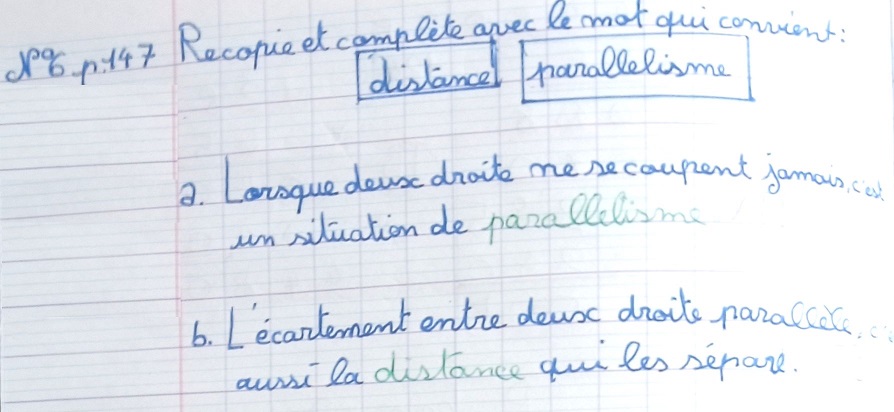 N°6 p.147 Recopie et complète avec le mot qui convient:
distance parallelisme
a. Lorsque deux droite ne se coupent jamais, c'est
un situation de parallelisme
b. L'écartement entre deux droite parallèle,
aussi la distance qui les sépare.